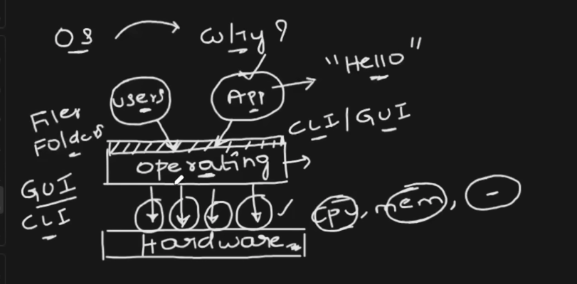 OS → Why?
"Hello"
users App
Files
Folders
CLI/GUI
operating
GUI
CLI
CPU, mem, -
Hardware